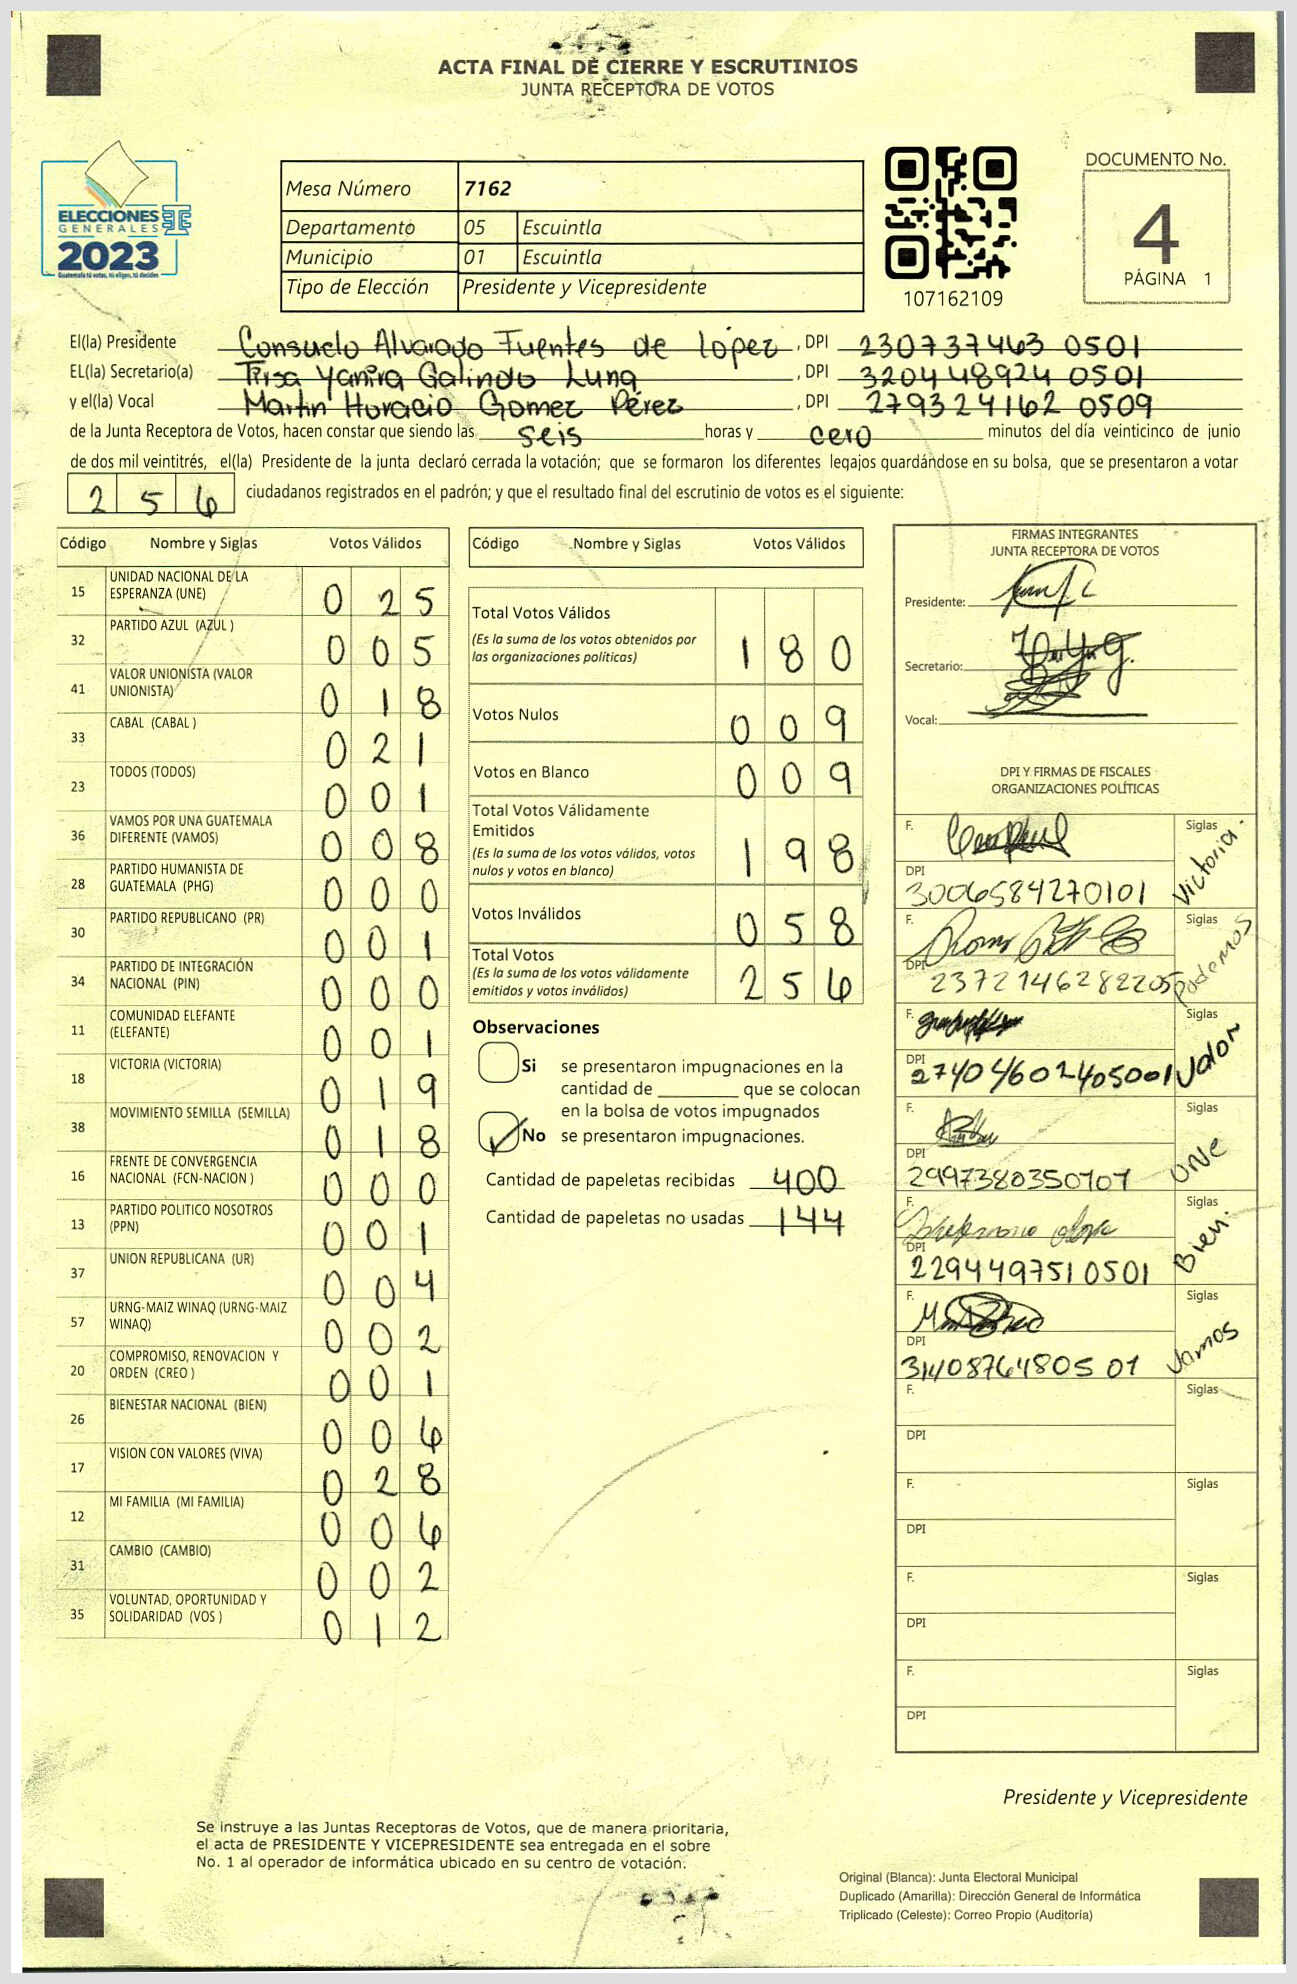 ACTA FINAL DE CIERRE Y ESCRUTINIOS
JUNTA RECEPTORA DE VOTOS
ELECCIONES
GENERALES
2023
Guatemala tú votas, tú eliges, tú decides
Mesa Número 7162
Departamento 05 Escuintla
Municipio 01 Escuintla
Tipo de Elección Presidente y Vicepresidente
107162109
DOCUMENTO No.
4
PÁGINA 1
El(la) Presidente Consuelo Alvarado Fuentes de López, DPI 230737463 0501
EL(la) Secretario(a) Yanira Galindo Luna, DPI 320448924 0501
y el(la) Vocal Martin Horacio Gomez Pérez, DPI 279324162 0509
de la Junta Receptora de Votos, hacen constar que siendo las seis horas y cero minutos del día veinticinco de junio
de dos mil veintitrés, el(la) Presidente de la junta declaró cerrada la votación; que se formaron los diferentes legajos quardándose en su bolsa, que se presentaron a votar
256 ciudadanos registrados en el padrón; y que el resultado final del escrutinio de votos es el siguiente:
Código Nombre y Siglas Votos Válidos
15 UNIDAD NACIONAL DE LA ESPERANZA (UNE) 0 2 5
32 PARTIDO AZUL (AZUL ) 0 0 5
41 VALOR UNIONISTA (VALOR UNIONISTA) 0 1 8
33 CABAL (CABAL ) 0 2 1
23 TODOS (TODOS) 0 0 1
36 VAMOS POR UNA GUATEMALA DIFERENTE (VAMOS) 0 0 8
28 PARTIDO HUMANISTA DE GUATEMALA (PHG) 0 0 0
30 PARTIDO REPUBLICANO (PR) 0 0 1
34 PARTIDO DE INTEGRACIÓN NACIONAL (PIN) 0 0 0
11 COMUNIDAD ELEFANTE (ELEFANTE) 0 0 1
18 VICTORIA (VICTORIA) 0 1 9
38 MOVIMIENTO SEMILLA (SEMILLA) 0 1 8
16 FRENTE DE CONVERGENCIA NACIONAL (FCN-NACION ) 0 0 0
13 PARTIDO POLITICO NOSOTROS (PPN) 0 0 1
37 UNION REPUBLICANA (UR) 0 0 4
57 URNG-MAIZ WINAQ (URNG-MAIZ WINAQ) 0 0 2
20 COMPROMISO, RENOVACION Y ORDEN (CREO ) 0 0 1
26 BIENESTAR NACIONAL (BIEN) 0 0 6
17 VISION CON VALORES (VIVA) 0 2 8
12 MI FAMILIA (MI FAMILIA) 0 0 6
31 CAMBIO (CAMBIO) 0 0 2
35 VOLUNTAD, OPORTUNIDAD Y SOLIDARIDAD (VOS ) 0 1 2
Código Nombre y Siglas Votos Válidos
Total Votos Válidos 1 8 0
(Es la suma de los votos obtenidos por
las organizaciones políticas)
Votos Nulos 0 0 9
Votos en Blanco 0 0 9
Total Votos Válidamente
Emitidos 1 9 8
(Es la suma de los votos válidos, votos
nulos y votos en blanco)
Votos Inválidos 0 5 8
Total Votos 2 5 6
(Es la suma de los votos válidamente
emitidos y votos inválidos)
Observaciones
Si se presentaron impugnaciones en la
cantidad de ________ que se colocan
en la bolsa de votos impugnados
No se presentaron impugnaciones.
Cantidad de papeletas recibidas 400
Cantidad de papeletas no usadas 144
FIRMAS INTEGRANTES
JUNTA RECEPTORA DE VOTOS
Presidente:
Secretario:
Vocal:
DPI Y FIRMAS DE FISCALES
ORGANIZACIONES POLÍTICAS
F. Siglas Victoria.
DPI 3006584270101
F. Siglas Podemos
DPI 2372146282205
F. Siglas Valor
DPI 2740460240500
F. Siglas UNe
DPI 2997380350707
F. Siglas Bien.
DPI 2294497510501
F. Siglas Vamos
DPI 3140876480501
F. Siglas
DPI
F. Siglas
DPI
F. Siglas
DPI
F. Siglas
DPI
Presidente y Vicepresidente
Se instruye a las Juntas Receptoras de Votos, que de manera prioritaria,
el acta de PRESIDENTE Y VICEPRESIDENTE sea entregada en el sobre
No. 1 al operador de informática ubicado en su centro de votación.
Original (Blanca): Junta Electoral Municipal
Duplicado (Amarilla): Dirección General de Informática
Triplicado (Celeste): Correo Propio (Auditoría)